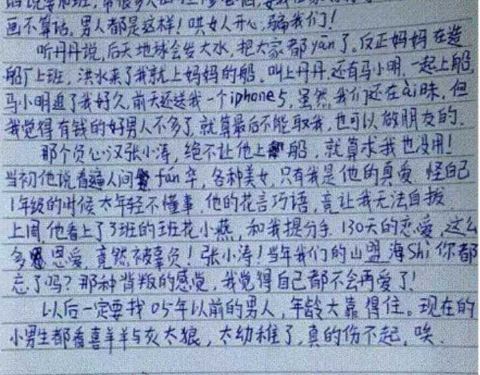 画不算话,男人都是这样!哄女人开心,骗我们!
听丹丹说,后天地球会发大水,把大家都yān了。反正妈妈在造
船厂上班,洪水来了我就上妈妈的船,叫上丹丹,还有马小明,一起上船,
马小明追了我好久,前天还送我一个iphone5,虽然我们还在ài昧,但
我觉得有钱的好男人不多了,就算最后不能取我,也可以做朋友的.
那个负心汉张小涛,绝不让他上船,就算求我也没用!
当初他说看遍人间fán华,各种美女,只有我是他的真爱,怪自己
1年级的时候太年轻不懂事,他的花言巧语,竟让我无法自拔
上周,他看上了3班的班花小燕,和我提分手,130天的恋爱,这么
多恩爱,竟然被辜负!张小涛!当年我们的山盟海shi你都
忘了吗?那种背叛的感觉,我觉得自己都不会再爱了!
以后一定要找05年以前的男人,年龄大靠得住。现在的
小男生都看喜羊羊与灰太狼,太幼稚了,真的伤不起,唉.